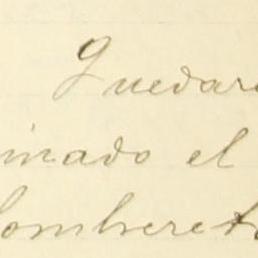 Quedar
inado el
Sombrerete